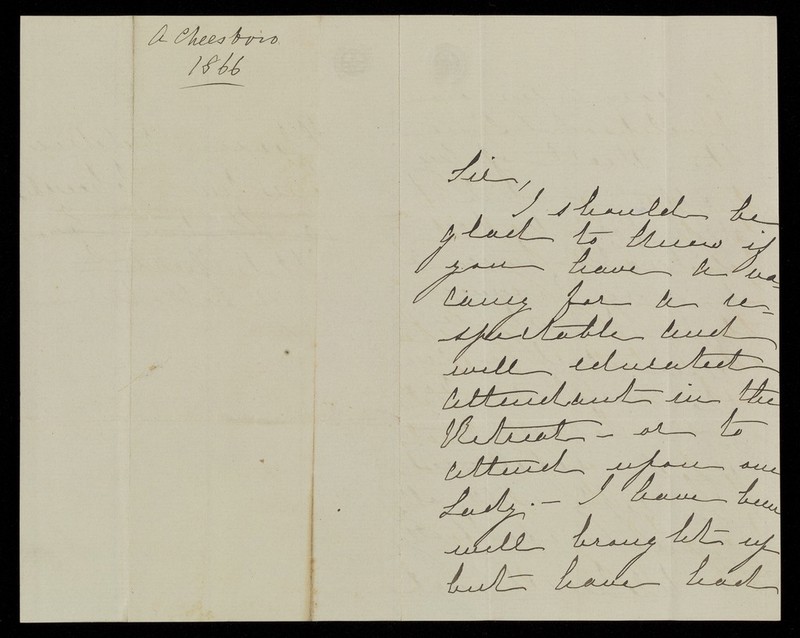 A Cheesboro.
1866
Sir,
I should be
glad to know if
you have a va-
cancy for a re-
spectable and
well educated
attendant in the
Retreat – or to
attend upon one
Lady. – I have been
well brought up
but have had